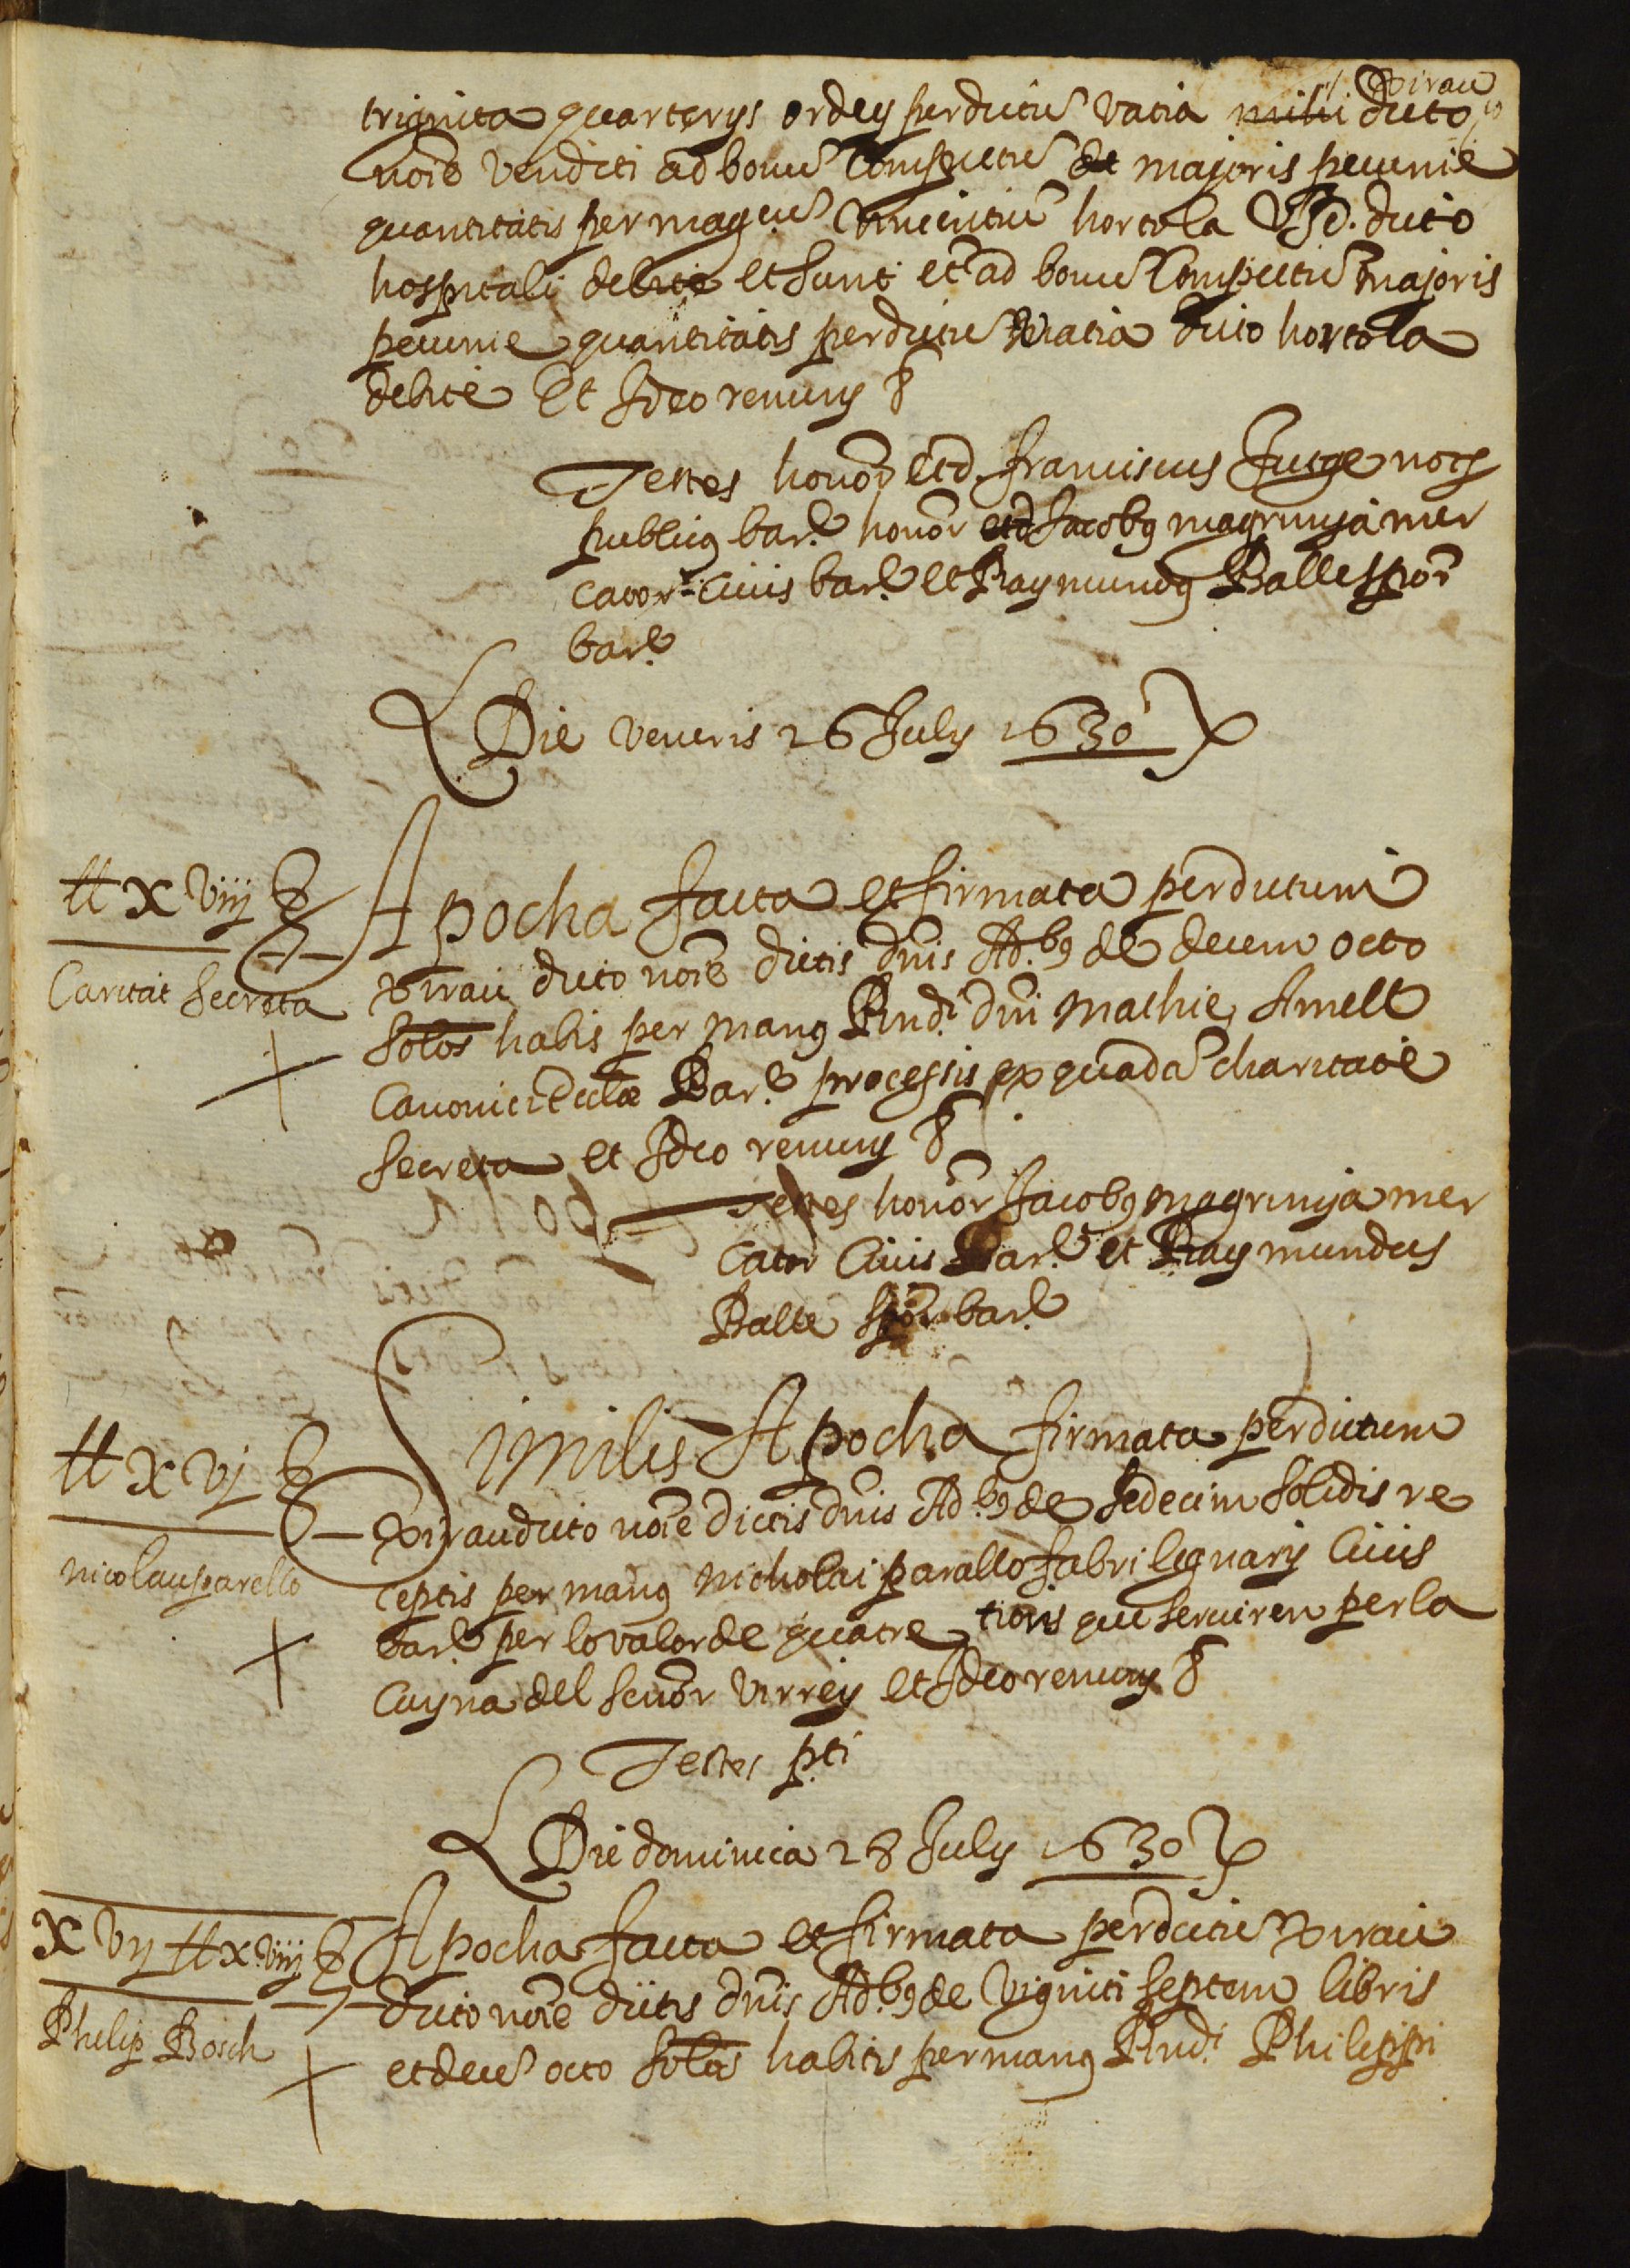 trignita quarterys ordey per dictũ Xirau dicto
noīe venditi ad bonũ Compu​tũ et majoris pecunie
quantitatis per magcũ Vincintiũ hortola dicto
hospitali debite et sunt et ad bonũ Computũ majoris
pecunie quantitatis per dictũ dicto hortola
debite Et Ideo renuny &
Testes honor et d. franciscus Jutge not9
publicg bar.ᵉ honor et d Jacobg magrinya mer
cator Ciuis bar.ᵉ et Raymundg Balle spor
bar.ᵉ
Die veneris 26 July 1630
tt x viij ß
Caritat Secreta
Apocha facta et firmata per dictum
Xirau dicto noīe dictis dñis Ad.b9 de decem octo
Solos habis per mang Rnd.i dñi Mathie Amell
Canonici Ecclæ Bar.ᵉ processis ex quadã charitate
Secreta et Ideo renuny &
Testes honor Jacobg magrinya mer
cator Ciuis Bar.ᵉ et Raymundus
Balle spor bar.ᵉ
tt x vj ß
nicolau parello
Similis Apocha firmata per dictum
Xirau dicto noīe dictis dñis Ad.b9 de Sedecim Solidis re
ceptis per mang Nicholai parallo fabri lignarij Ciuis
bar.ᵉ per lo valor de quatre tions que seruiren per la
Cuyna del senor virrey et Ideo renuny &
Testes p.ti
Die dominica 28 July 1630
x vij tt x viij ß
Phelip Bosch
Apocha facta et firmata per dictũ Xirau
dicto noīe dictis dñis Ad.b9 de viginti septem libris
et decẽ octo Solis habitis per mang Rnd.i Philippi